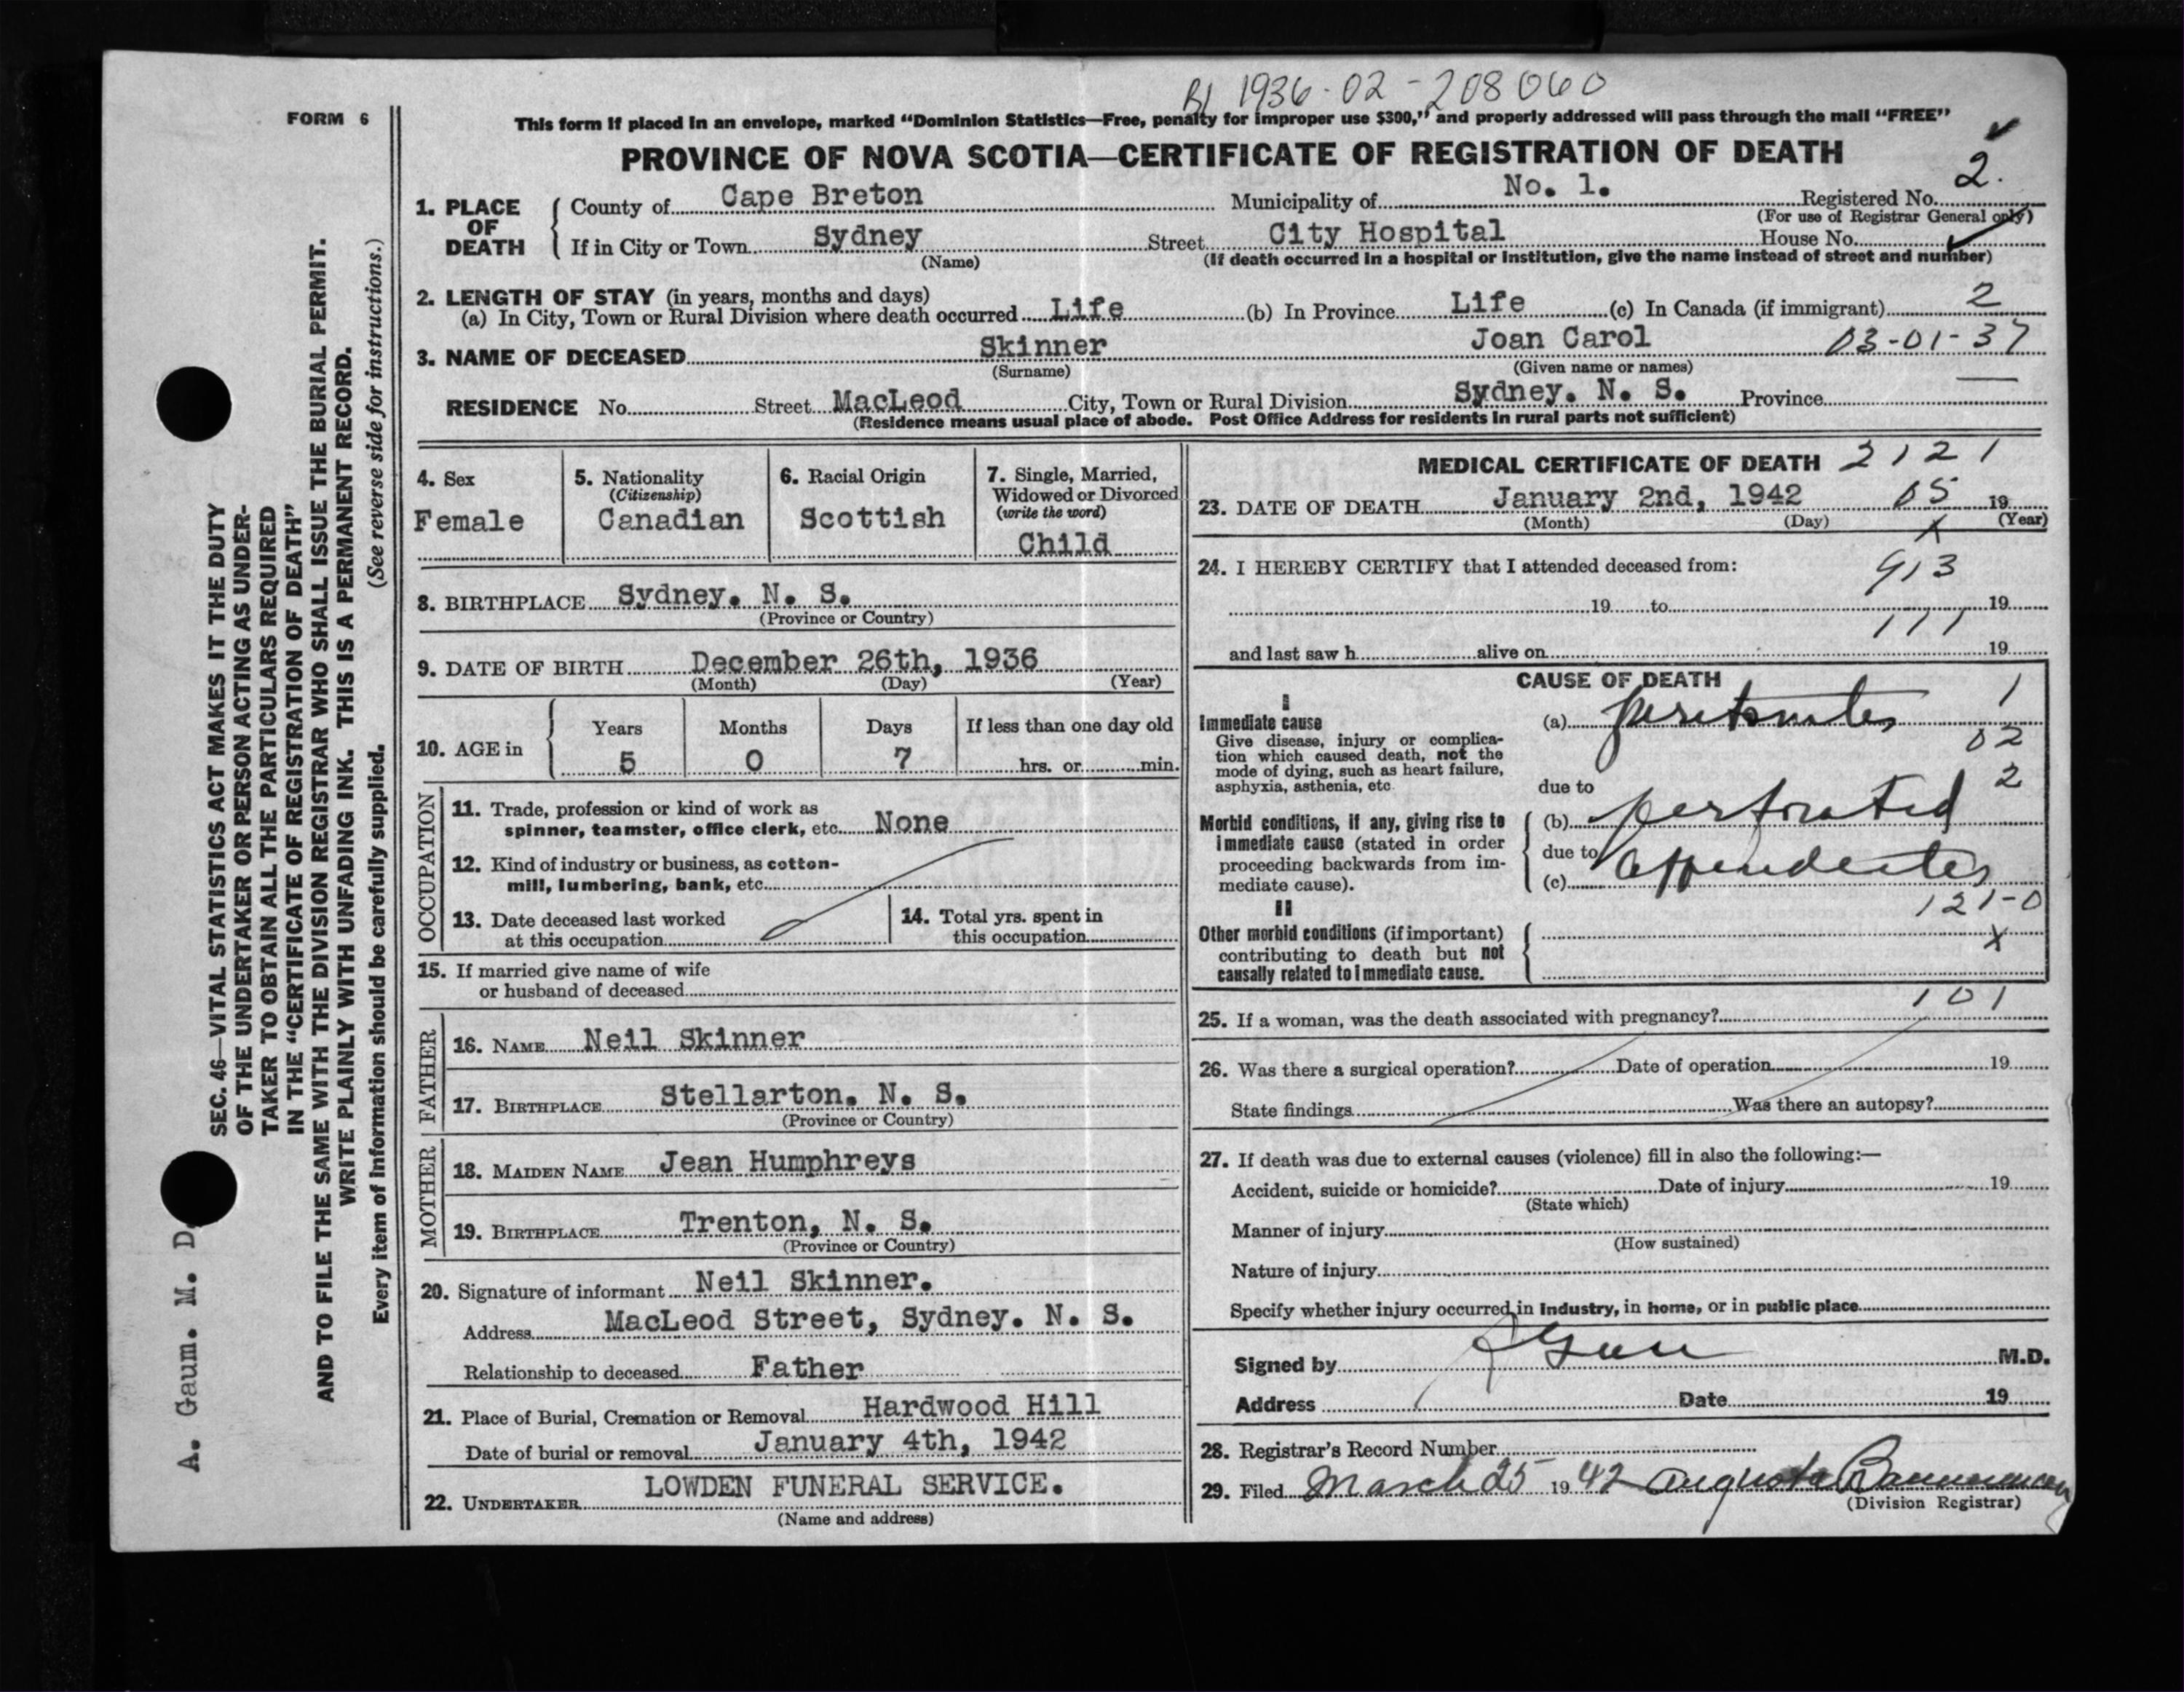 B1 1936-02-208060
FORM 6
This form if placed in an envelope, marked "Dominion Statistics—Free, penalty for improper use $300," and properly addressed will pass through the mail "FREE"
PROVINCE OF NOVA SCOTIA—CERTIFICATE OF REGISTRATION OF DEATH
1. PLACE OF DEATH
County of Cape Breton Municipality of No. 1. Registered No. 2.
(For use of Registrar General only)
If in City or Town Sydney Street City Hospital House No.
(Name) (If death occurred in a hospital or institution, give the name instead of street and number)
2. LENGTH OF STAY (in years, months and days)
(a) In City, Town or Rural Division where death occurred Life (b) In Province Life (c) In Canada (if immigrant) 2
3. NAME OF DECEASED Skinner Joan Carol 03-01-37
(Surname) (Given name or names)
RESIDENCE No. Street MacLeod City, Town or Rural Division Sydney. N. S. Province
(Residence means usual place of abode. Post Office Address for residents in rural parts not sufficient)
4. Sex
Female
5. Nationality
(Citizenship)
Canadian
6. Racial Origin
Scottish
7. Single, Married,
Widowed or Divorced
(write the word)
Child
8. BIRTHPLACE Sydney. N. S.
(Province or Country)
9. DATE OF BIRTH December 26th, 1936
(Month) (Day) (Year)
10. AGE in
Years Months Days If less than one day old
5 0 7 hrs. or min.
OCCUPATION
11. Trade, profession or kind of work as
spinner, teamster, office clerk, etc. None
12. Kind of industry or business, as cotton-
mill, lumbering, bank, etc.
13. Date deceased last worked
at this occupation
14. Total yrs. spent in
this occupation
15. If married give name of wife
or husband of deceased
FATHER
16. NAME Neil Skinner
17. BIRTHPLACE Stellarton. N. S.
(Province or Country)
MOTHER
18. MAIDEN NAME Jean Humphreys
19. BIRTHPLACE Trenton, N. S.
(Province or Country)
20. Signature of informant Neil Skinner.
Address MacLeod Street, Sydney. N. S.
Relationship to deceased Father
21. Place of Burial, Cremation or Removal Hardwood Hill
Date of burial or removal January 4th, 1942
22. UNDERTAKER LOWDEN FUNERAL SERVICE.
(Name and address)
MEDICAL CERTIFICATE OF DEATH 2121
23. DATE OF DEATH January 2nd, 1942 05 19
(Month) (Day) (Year)
X
24. I HEREBY CERTIFY that I attended deceased from:
913
19 to 19
111
and last saw h alive on 19
CAUSE OF DEATH
I
Immediate cause
Give disease, injury or complica-
tion which caused death, not the
mode of dying, such as heart failure,
asphyxia, asthenia, etc.
(a) peritonites 1
02
due to 2
Morbid conditions, if any, giving rise to
immediate cause (stated in order
proceeding backwards from im-
mediate cause).
(b) perforated
due to
(c) appendicites
121-0
II
Other morbid conditions (if important)
contributing to death but not
causally related to immediate cause.
X
101
25. If a woman, was the death associated with pregnancy?
26. Was there a surgical operation? Date of operation 19
State findings Was there an autopsy?
27. If death was due to external causes (violence) fill in also the following:—
Accident, suicide or homicide? Date of injury 19
(State which)
Manner of injury
(How sustained)
Nature of injury
Specify whether injury occurred in industry, in home, or in public place
Signed by A Gaum M.D.
Address Date 19
28. Registrar's Record Number
29. Filed March 25 1942 Augusta Bannerman
(Division Registrar)
SEC. 46—VITAL STATISTICS ACT MAKES IT THE DUTY
OF THE UNDERTAKER OR PERSON ACTING AS UNDER-
TAKER TO OBTAIN ALL THE PARTICULARS REQUIRED
IN THE "CERTIFICATE OF REGISTRATION OF DEATH"
AND TO FILE THE SAME WITH THE DIVISION REGISTRAR WHO SHALL ISSUE THE BURIAL PERMIT.
WRITE PLAINLY WITH UNFADING INK. THIS IS A PERMANENT RECORD.
Every item of information should be carefully supplied. (See reverse side for instructions.)
A. Gaum. M. D.